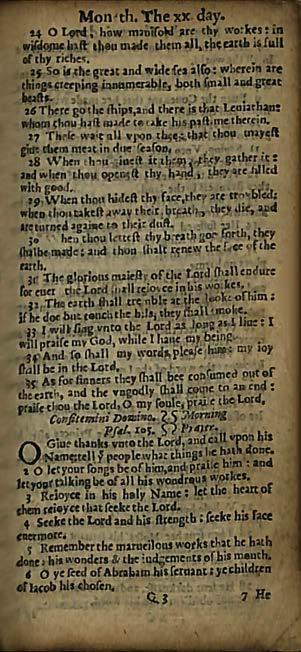 Mon th. The xx day.
24 O Lord, how manifold are thy workes: in
wisdome hast thou made them all, the earth is full
of thy riches.
25 So is the great and wide sea also: wherein are
things creeping innumerable, both small and great
beasts.
26 There go the ships, and there is that Leuiathan:
whom thou hast made to take his pastime therein.
27 These wait all vpon thee: that thou mayest
giue them meat in due season.
28 When thou giuest it them, they gather it:
and when thou openest thy hand, they are filled
with good.
29 When thou hidest thy face, they are troubled:
when thou takest away their breath, they die, and
are turned againe to their dust.
30 hen thou lettest thy breath goe forth, they
shalbe made: and thou shalt renew the face of the
earth.
31 The glorious maiesty of the Lord shall endure
for euer the Lord shall reioyce in his workes.
32 The earth shall tremble at the looke of him:
if he doe but touch the hils, they shall smoke.
33 I will sing vnto the Lord as long as I liue: I
will praise my God, while I haue my being.
34 And so shall my words please him: my ioy
shall be in the Lord.
35 As for sinners they shall bee consumed out of
the earth, and the vngodly shall come to an end:
praise thou the Lord, O my soule, praise the Lord.
Confitemini Domino. Morning
Psal. 105. Prayer.
O Giue thanks vnto the Lord, and call vpon his
Name: tell yͤ people what things he hath done.
2 O let your songs be of him, and praise him: and
let your talking be of all his wondrous workes.
3 Reioyce in his holy Name: let the heart of
them reioyce that seeke the Lord.
4 Seeke the Lord and his strength: seeke his face
euermore.
5 Remember the marueilous works that he hath
done: his wonders & the iudgements of his mouth.
6 O ye seed of Abraham his seruant: ye children
of Iacob his chosen.
G 3 7 He